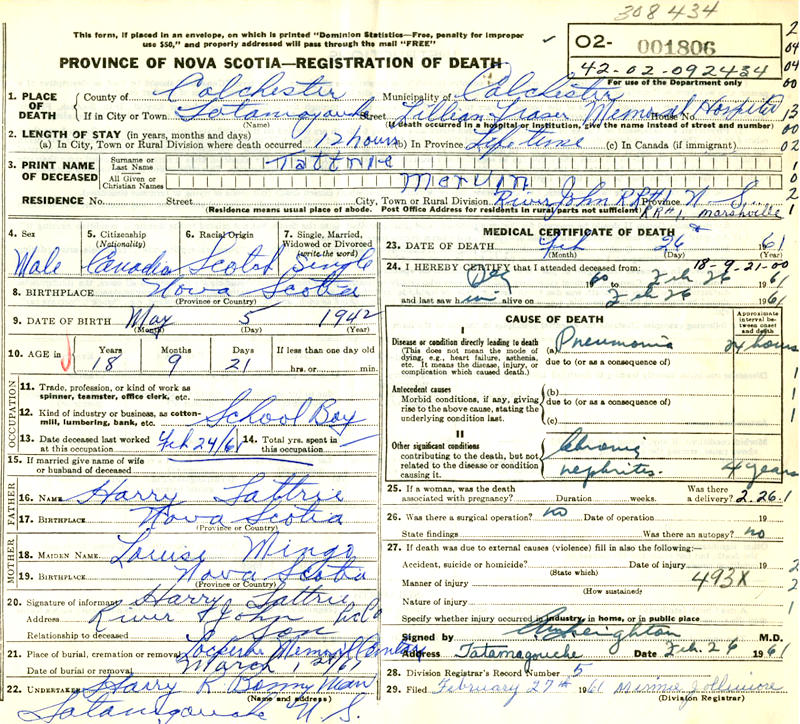 308434
This form, if placed in an envelope, on which is printed "Dominion Statistics—Free, penalty for improper
use $50," and properly addressed will pass through the mail "FREE"
PROVINCE OF NOVA SCOTIA—REGISTRATION OF DEATH
02- 001806
42-02-092434
For use of the Department only
1. PLACE OF DEATH
County of Colchester Municipality of Colchester
If in City or Town Tatamagouche Street Lillian Fraser Memorial Hospital House No.
(Name) (If death occurred in a hospital or institution, give the name instead of street and number)
2. LENGTH OF STAY (in years, months and days)
(a) In City, Town or Rural Division where death occurred 12 hours (b) In Province Lifetime (c) In Canada (if immigrant)
3. PRINT NAME OF DECEASED
Surname or Last Name Tattrie
All Given or Christian Names Mervin
RESIDENCE No. Street City, Town or Rural Division River John RR#1 Province N.S.
(Residence means usual place of abode. Post Office Address for residents in rural parts not sufficient) RR#1, Marshville
4. Sex 5. Citizenship (Nationality) 6. Racial Origin 7. Single, Married, Widowed or Divorced (write the word)
Male Canadia Scotch Single
8. BIRTHPLACE Nova Scotia
(Province or Country)
9. DATE OF BIRTH May 5 1942
(Month) (Day) (Year)
10. AGE in Years Months Days If less than one day old
18 9 21 hrs. or min.
OCCUPATION
11. Trade, profession, or kind of work as spinner, teamster, office clerk, etc.
12. Kind of industry or business, as cotton-mill, lumbering, bank, etc. School Boy
13. Date deceased last worked at this occupation Feb 24/61 14. Total yrs. spent in this occupation
15. If married give name of wife or husband of deceased
FATHER
16. NAME Harry Tattrie
17. BIRTHPLACE Nova Scotia
(Province or Country)
MOTHER
18. MAIDEN NAME Louise Mingo
19. BIRTHPLACE Nova Scotia
(Province or Country)
20. Signature of informant Harry Tattrie
Address River John
Relationship to deceased Son
21. Place of burial, cremation or removal Memorial
Date of burial or removal March 1 1961
22. UNDERTAKER Harry R Bonnyman
(Name and address)
Tatamagouche N.S.
MEDICAL CERTIFICATE OF DEATH
23. DATE OF DEATH Feb 26 1961
(Month) (Day) (Year)
18-9-21-00
24. I HEREBY CERTIFY that I attended deceased from:
Dec 1960 to Feb 26 1961
and last saw him alive on Feb 26 1961
CAUSE OF DEATH
Approximate interval between onset and death
I
Disease or condition directly leading to death
(This does not mean the mode of dying, e.g., heart failure, asthenia, etc. It means the disease, injury, or complication which caused death.)
(a) Pneumonia 24 hours
due to (or as a consequence of)
Antecedent causes
Morbid conditions, if any, giving rise to the above cause, stating the underlying condition last.
(b)
due to (or as a consequence of)
(c)
II
Other significant conditions
contributing to the death, but not related to the disease or condition causing it.
Chronic
nephritis. 4 years
25. If a woman, was the death associated with pregnancy? Duration weeks. Was there a delivery? 2.26.1
26. Was there a surgical operation? no Date of operation 19
State findings Was there an autopsy? no
27. If death was due to external causes (violence) fill in also the following:—
Accident, suicide or homicide? Date of injury 19
(State which)
Manner of injury 493X
(How sustained)
Nature of injury
Specify whether injury occurred in industry, in home, or in public place
Signed by Creighton M.D.
Address Tatamagouche Date Feb. 26 1961
28. Division Registrar's Record Number 5
29. Filed February 27th 1961
(Division Registrar)